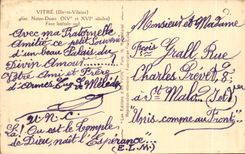 VITRÉ (Ille-et-Vilaine)
Notre-Dame (XVe et XVIe siècles)
Avec ma Fraternelle
Amitié ce petit Souvenir
d'un beau Palais du
Divin Amour.
Votre Ami et Frère
d'Armes
U.N.C.
Où est le Temple
de Dieu, naît l'Espérance
(E.L.M.)
Monsieur et Madame
Grall, Rue
Charles Prevet, 8
à St Malo, I et V
Unis comme au Front!